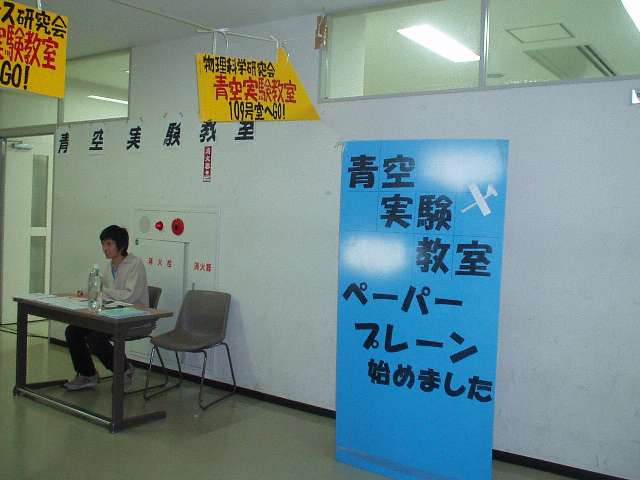 ス研究会
実験教室
GO!
物理科学研究会
青空実験教室
109号室へGO!
青空実験教室
消火器
消火栓
消火器
青空
実験
教室
ペーパー
プレーン
始めました